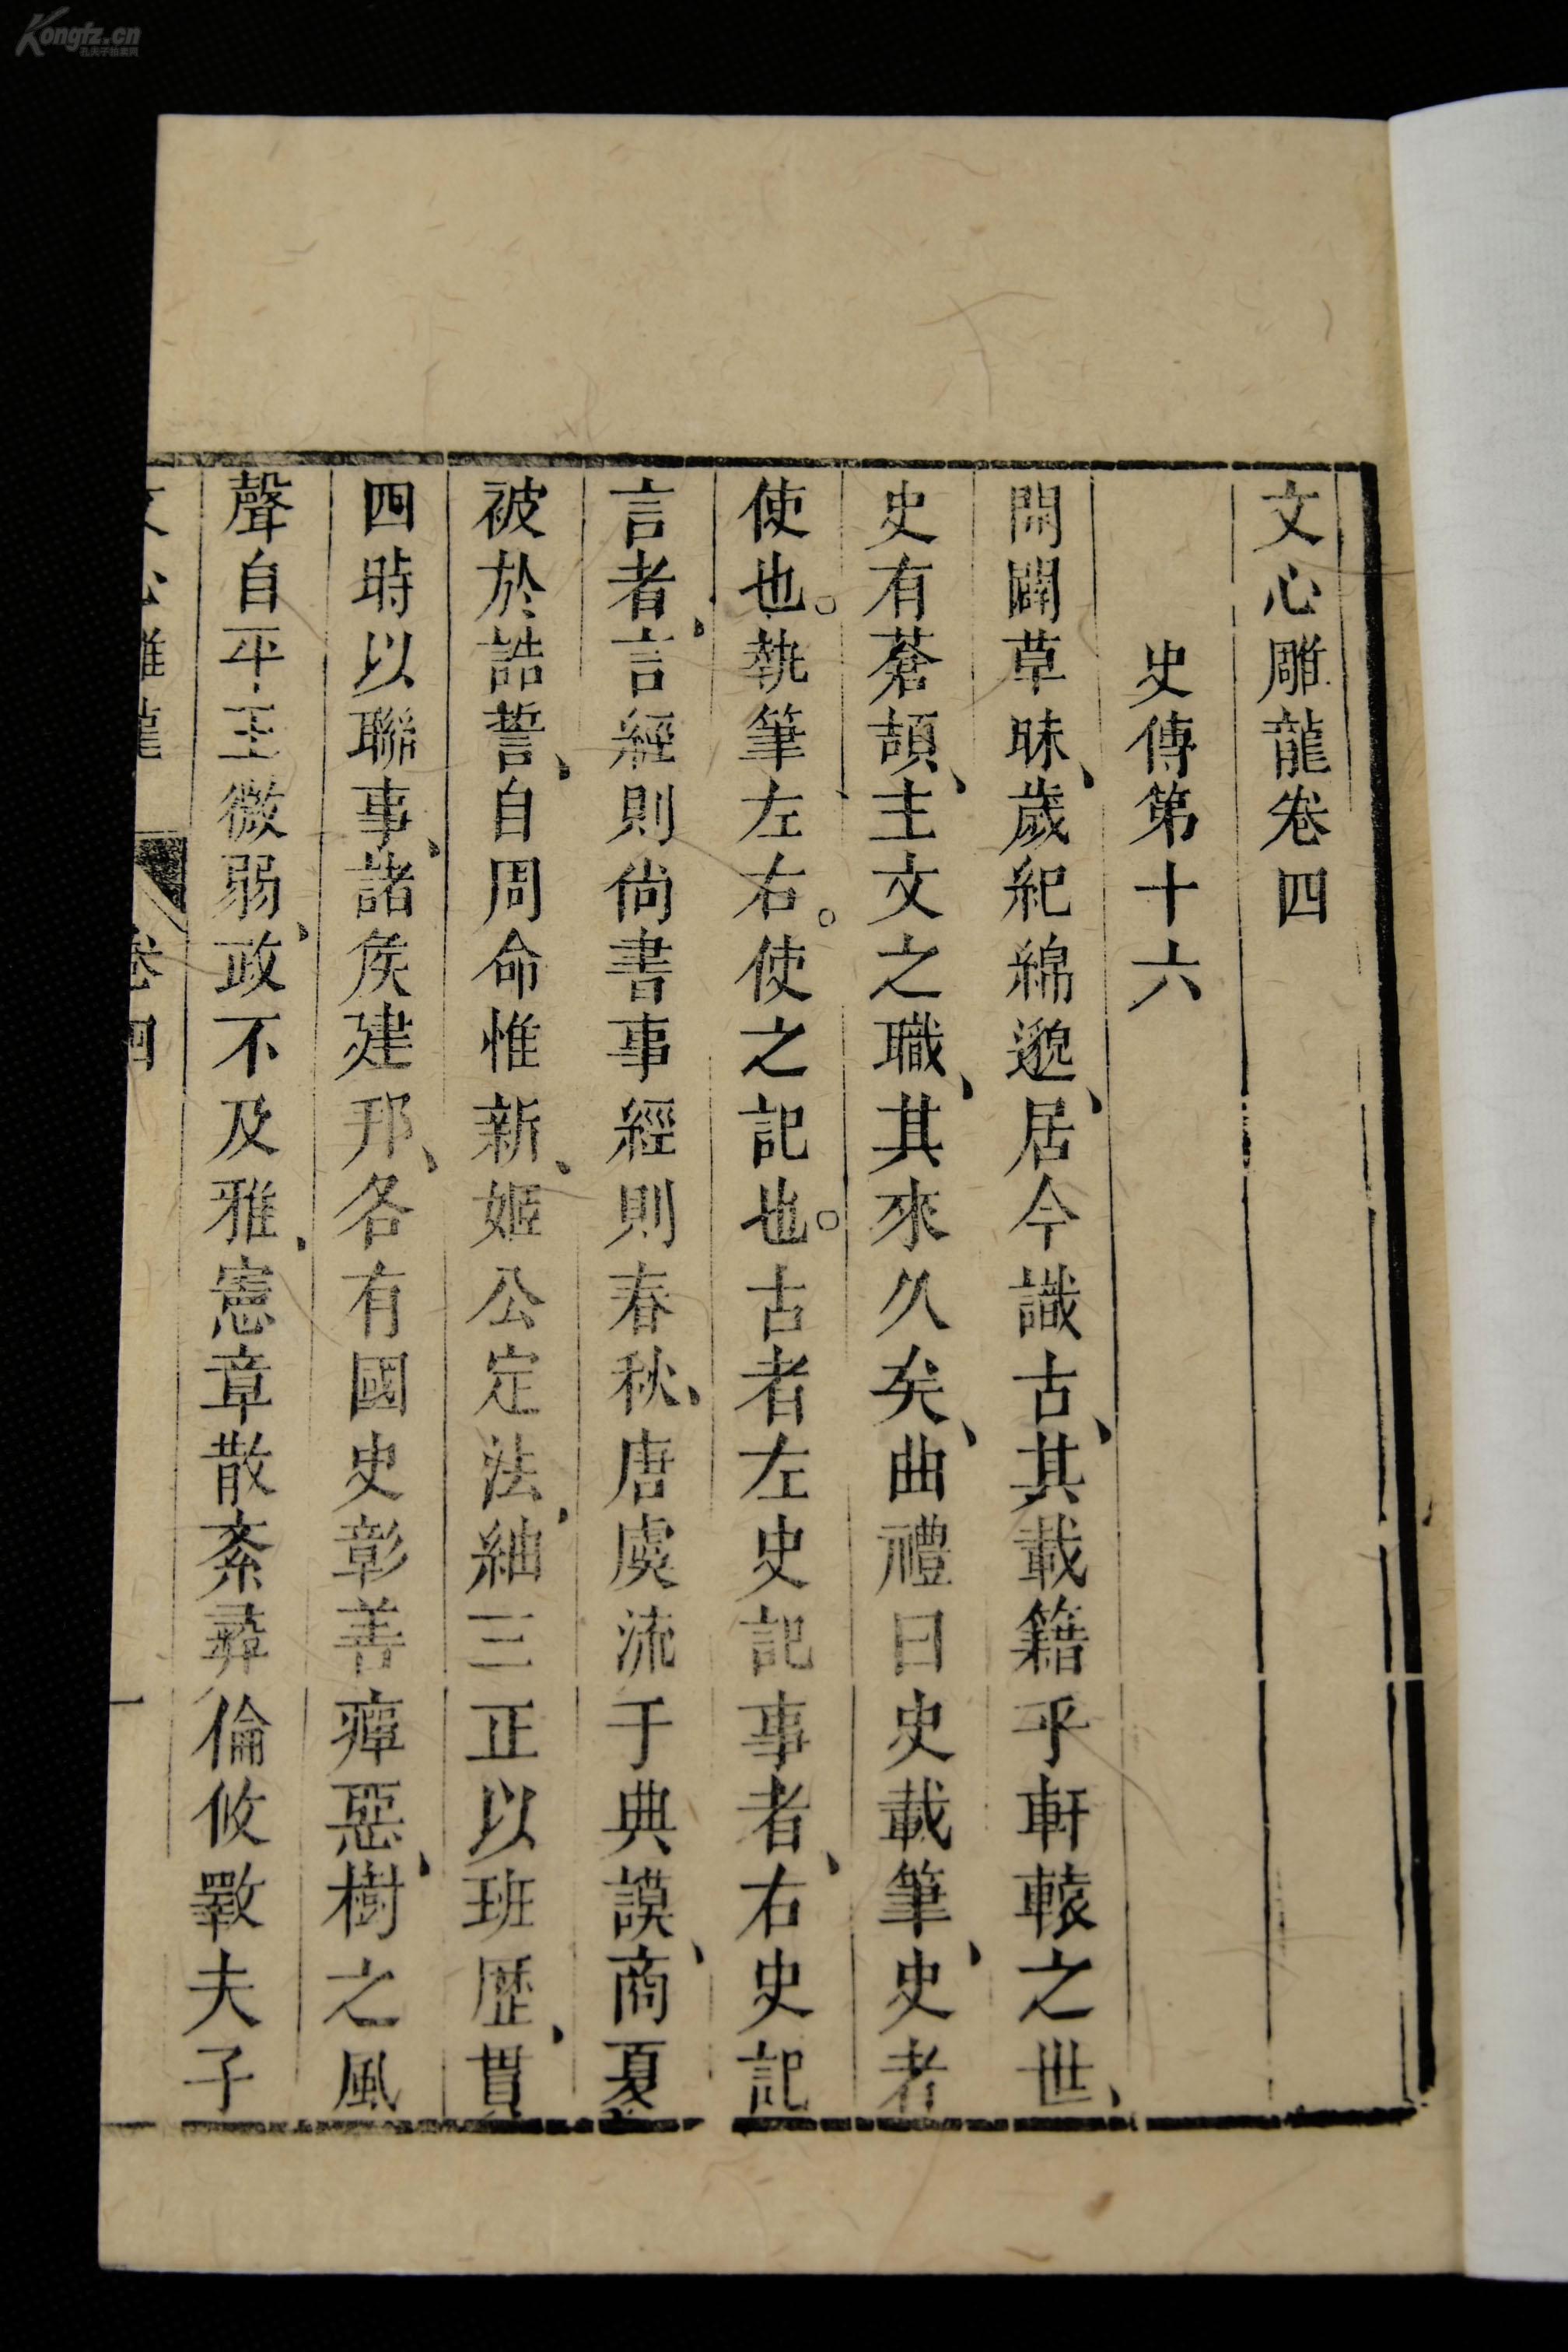 Kongfz.cn
孔夫子拍卖网
文心雕龍卷四
史傳第十六
開闢草昧、歲紀綿邈、居今識古、其載籍乎軒轅之世、
史有蒼頡、主文之職、其來久矣、曲禮曰史載筆、史者
使也。執筆左右。使之記也。古者左史記事者、右史記
言者、言經則尙書事經則春秋、唐虞流于典謨、商夏
被於誥誓、自周命惟新、姬公定法、紬三正以班歷、貫
四時以聯事、諸侯建邦、各有國史彰善癉惡、樹之風
聲自平王微弱、政不及雅、憲章散紊彞倫攸斁夫子
文心雕龍 卷四 一